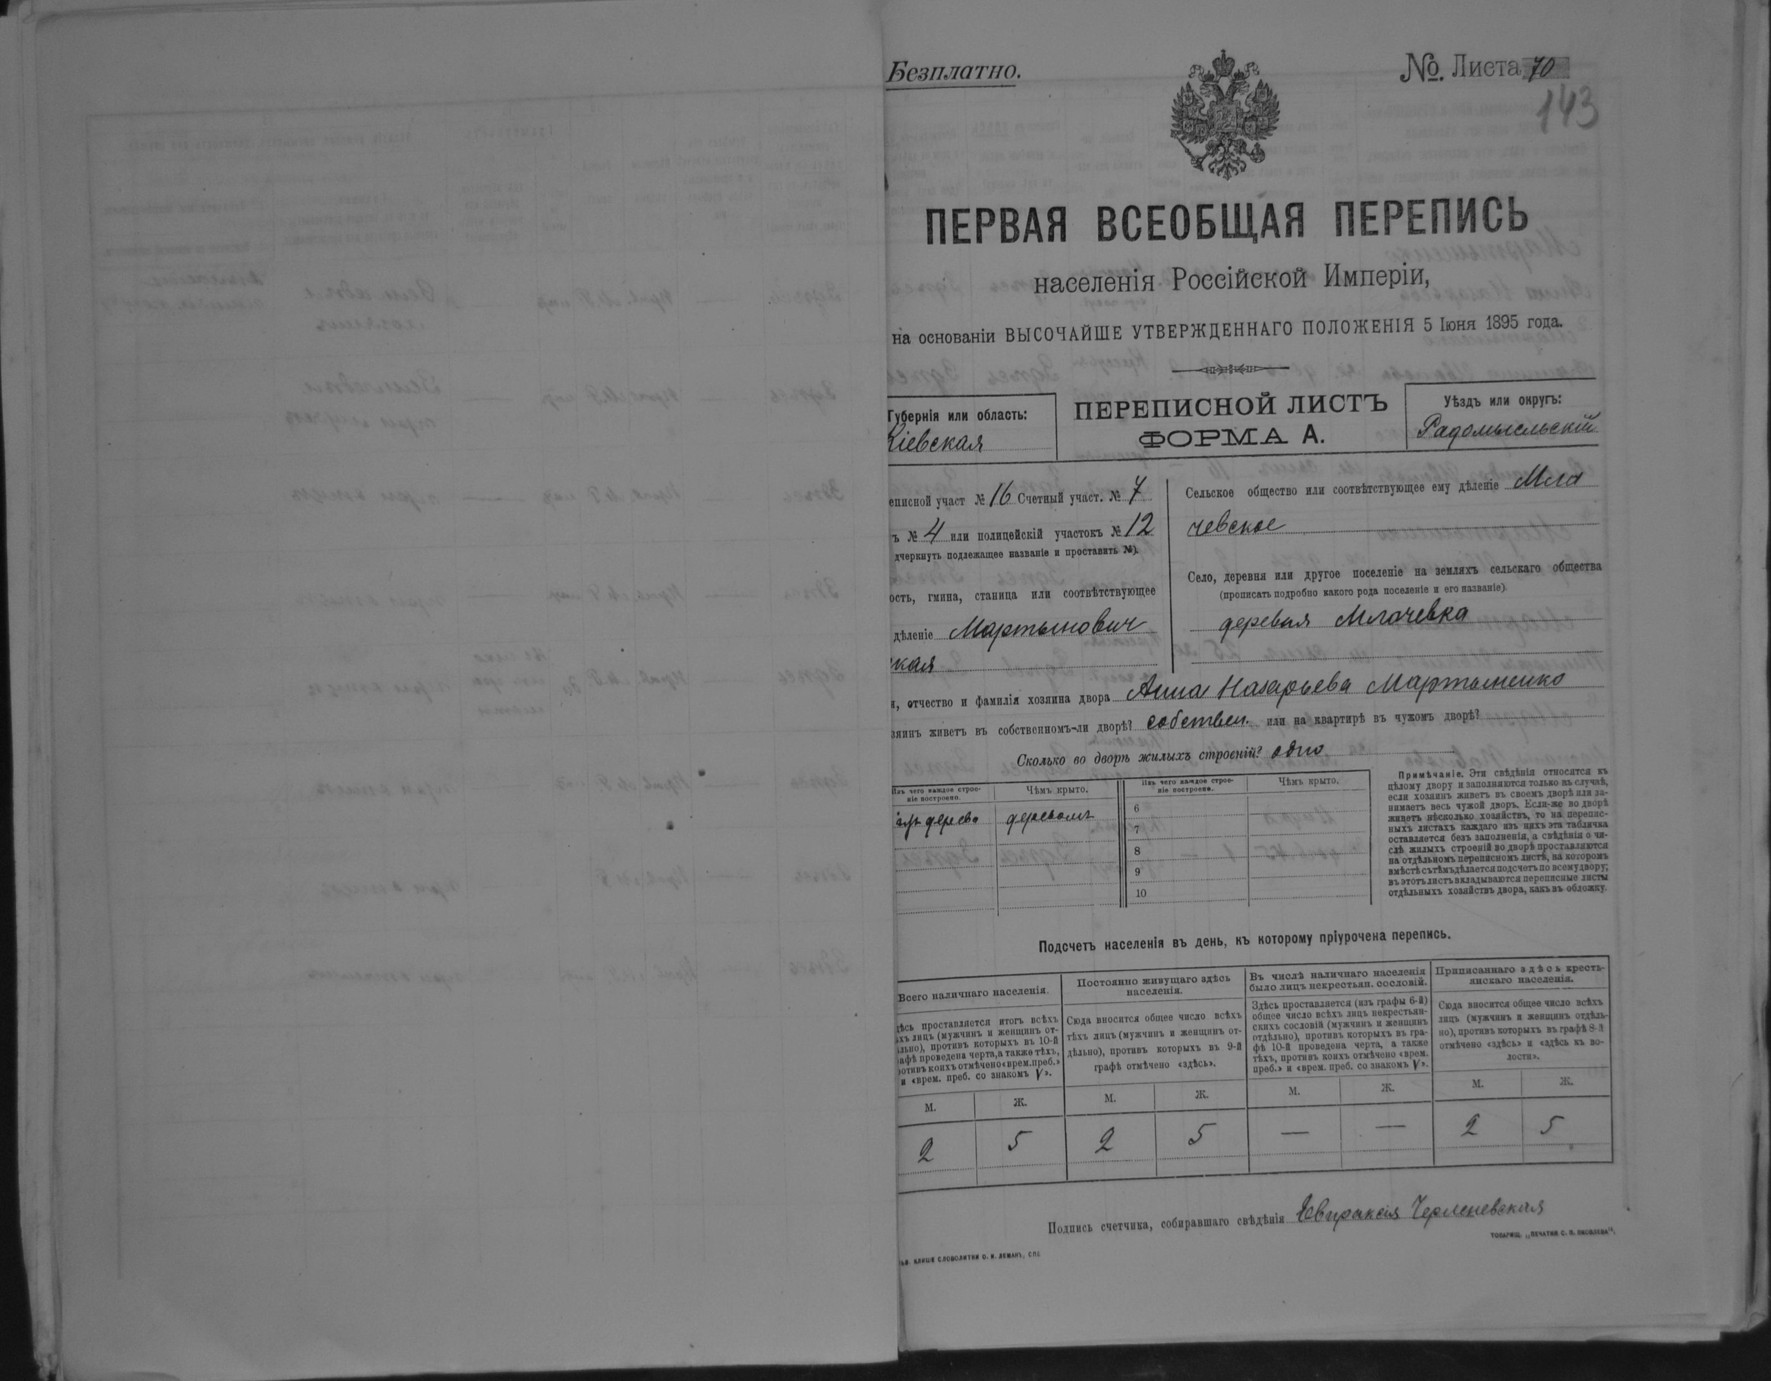 Безплатно.
№. Листа 70
143
ПЕРВАЯ ВСЕОБЩАЯ ПЕРЕПИСЬ
населенія Россійской Имперіи,
на основаніи ВЫСОЧАЙШЕ УТВЕРЖДЕННАГО ПОЛОЖЕНІЯ 5 Іюня 1895 года.
Губернія или область:
Кіевская
ПЕРЕПИСНОЙ ЛИСТЪ
ФОРМА А.
Уѣздъ или округъ:
Радомысльскій
еписной участ № 16 Счетный участ. № 7
ъ № 4 или полицейскій участокъ № 12
дчеркнуть подлежащее названіе и проставить №).
ость, гмина, станица или соотвѣтствующее
дѣленіе Мартынович
кая
Сельское общество или соотвѣтствующее ему дѣленіе Мла
чевское
Село, деревня или другое поселеніе на земляхъ сельскаго общества
(прописать подробно какого рода поселеніе и его названіе)
деревня Млачевка
я, отчество и фамилія хозяина двора Анна Назарьева Мартыненко
зяинъ живетъ въ собственномъ-ли дворѣ? собствен. или на квартирѣ въ чужомъ дворѣ?
Сколько во дворѣ жилыхъ строеній? одно
Изъ чего каждое строе-
ніе построено.
Чѣмъ крыто.
Изъ чего каждое строе-
ніе построено.
Чѣмъ крыто.
изъ дерева деревомъ
6
7
8
9
10
Примѣчаніе. Эти свѣдѣнія относятся къ
цѣлому двору и заполняются только въ случаѣ,
если хозяинъ живетъ въ своемъ дворѣ или за-
нимаетъ весь чужой дворъ. Если-же во дворѣ
живетъ нѣсколько хозяйствъ, то на перепис-
ныхъ листахъ каждаго изъ нихъ эта табличка
оставляется безъ заполненія, а свѣдѣнія о чи-
слѣ жилыхъ строеній во дворѣ проставляются
на отдѣльномъ переписномъ листѣ, на которомъ
вмѣстѣ съ тѣмъ дѣлается подсчетъ по всему двору;
въ этотъ листъ вкладываются переписные листы
отдѣльныхъ хозяйствъ двора, какъ въ обложку.
Подсчетъ населенія въ день, къ которому пріурочена перепись.
Всего наличнаго населенія.
дѣсь проставляется итогъ всѣхъ
ѣхъ лицъ (мужчинъ и женщинъ от-
ѣльно), противъ которыхъ въ 10-й
рафѣ проведена черта, а также тѣхъ,
ротивъ коихъ отмѣчено «врем. преб.»
и «врем. преб. со знакомъ V».
Постоянно живущаго здѣсь
населенія.
Сюда вносится общее число всѣхъ
тѣхъ лицъ (мужчинъ и женщинъ от-
дѣльно), противъ которыхъ въ 9-й
графѣ отмѣчено «здѣсь».
Въ числѣ наличнаго населенія
было лицъ некрестьян. сословій.
Здѣсь проставляется (изъ графы 6-й)
общее число всѣхъ лицъ некрестьян-
скихъ сословій (мужчинъ и женщинъ
отдѣльно), противъ которыхъ въ гра-
фѣ 10-й проведена черта, а также
тѣхъ, противъ коихъ отмѣчено «врем.
преб.» и «врем. преб. со знакомъ V».
Приписаннаго здѣсь кресть-
янскаго населенія.
Сюда вносится общее число всѣхъ
лицъ (мужчинъ и женщинъ отдѣль-
но), противъ которыхъ въ графѣ 8-й
отмѣчено «здѣсь» и «здѣсь въ во-
лости».
М. Ж. М. Ж. М. Ж. М. Ж.
2 5 2 5 — — 2 5
Подпись счетчика, собиравшаго свѣдѣнія Евпраксія Черленевская
СЛОВОЛИТНИ О. И. ЛЕМАНЪ, СПБ
ТОВАРИЩ. „ПЕЧАТНИ С. П. ЯКОВЛЕВА“.